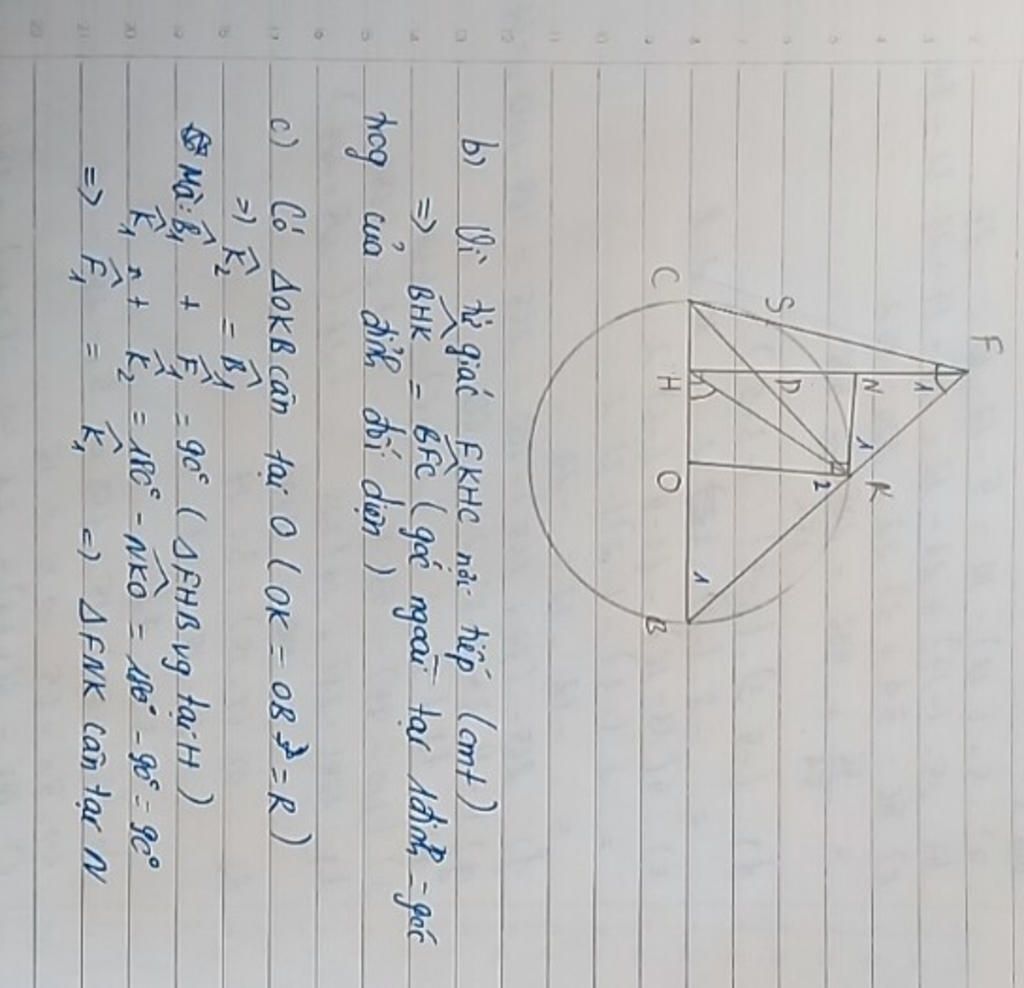 F
S
N
K
1
1
D
2
C
H
O
1
B
b) Vì tứ giác FKHC nội tiếp (cmt)
=> BHK = BFC (góc ngoài tại 1 đỉnh = góc
trog của đỉnh đối diện)
c) Có ΔOKB cân tại O (OK = OB = R)
=> K̂₂ = B̂₁
Mà: B̂₁ + F̂₁ = 90° (ΔFHB vg tại H)
K̂₁ + K̂₂ = 180° - NKO = 180° - 90° = 90°
=> F̂₁ = K̂₁ => ΔFNK cân tại N